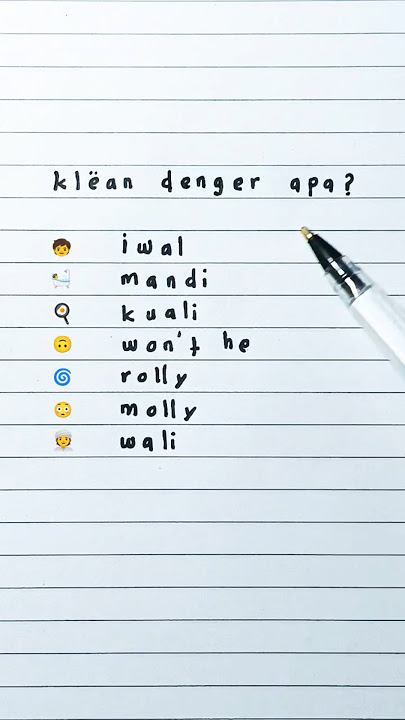 klëan denger apa?
🧒 iwal
🛀 mandi
🍳 kuali
🙃 won't he
🌀 rolly
😳 molly
👳 wali